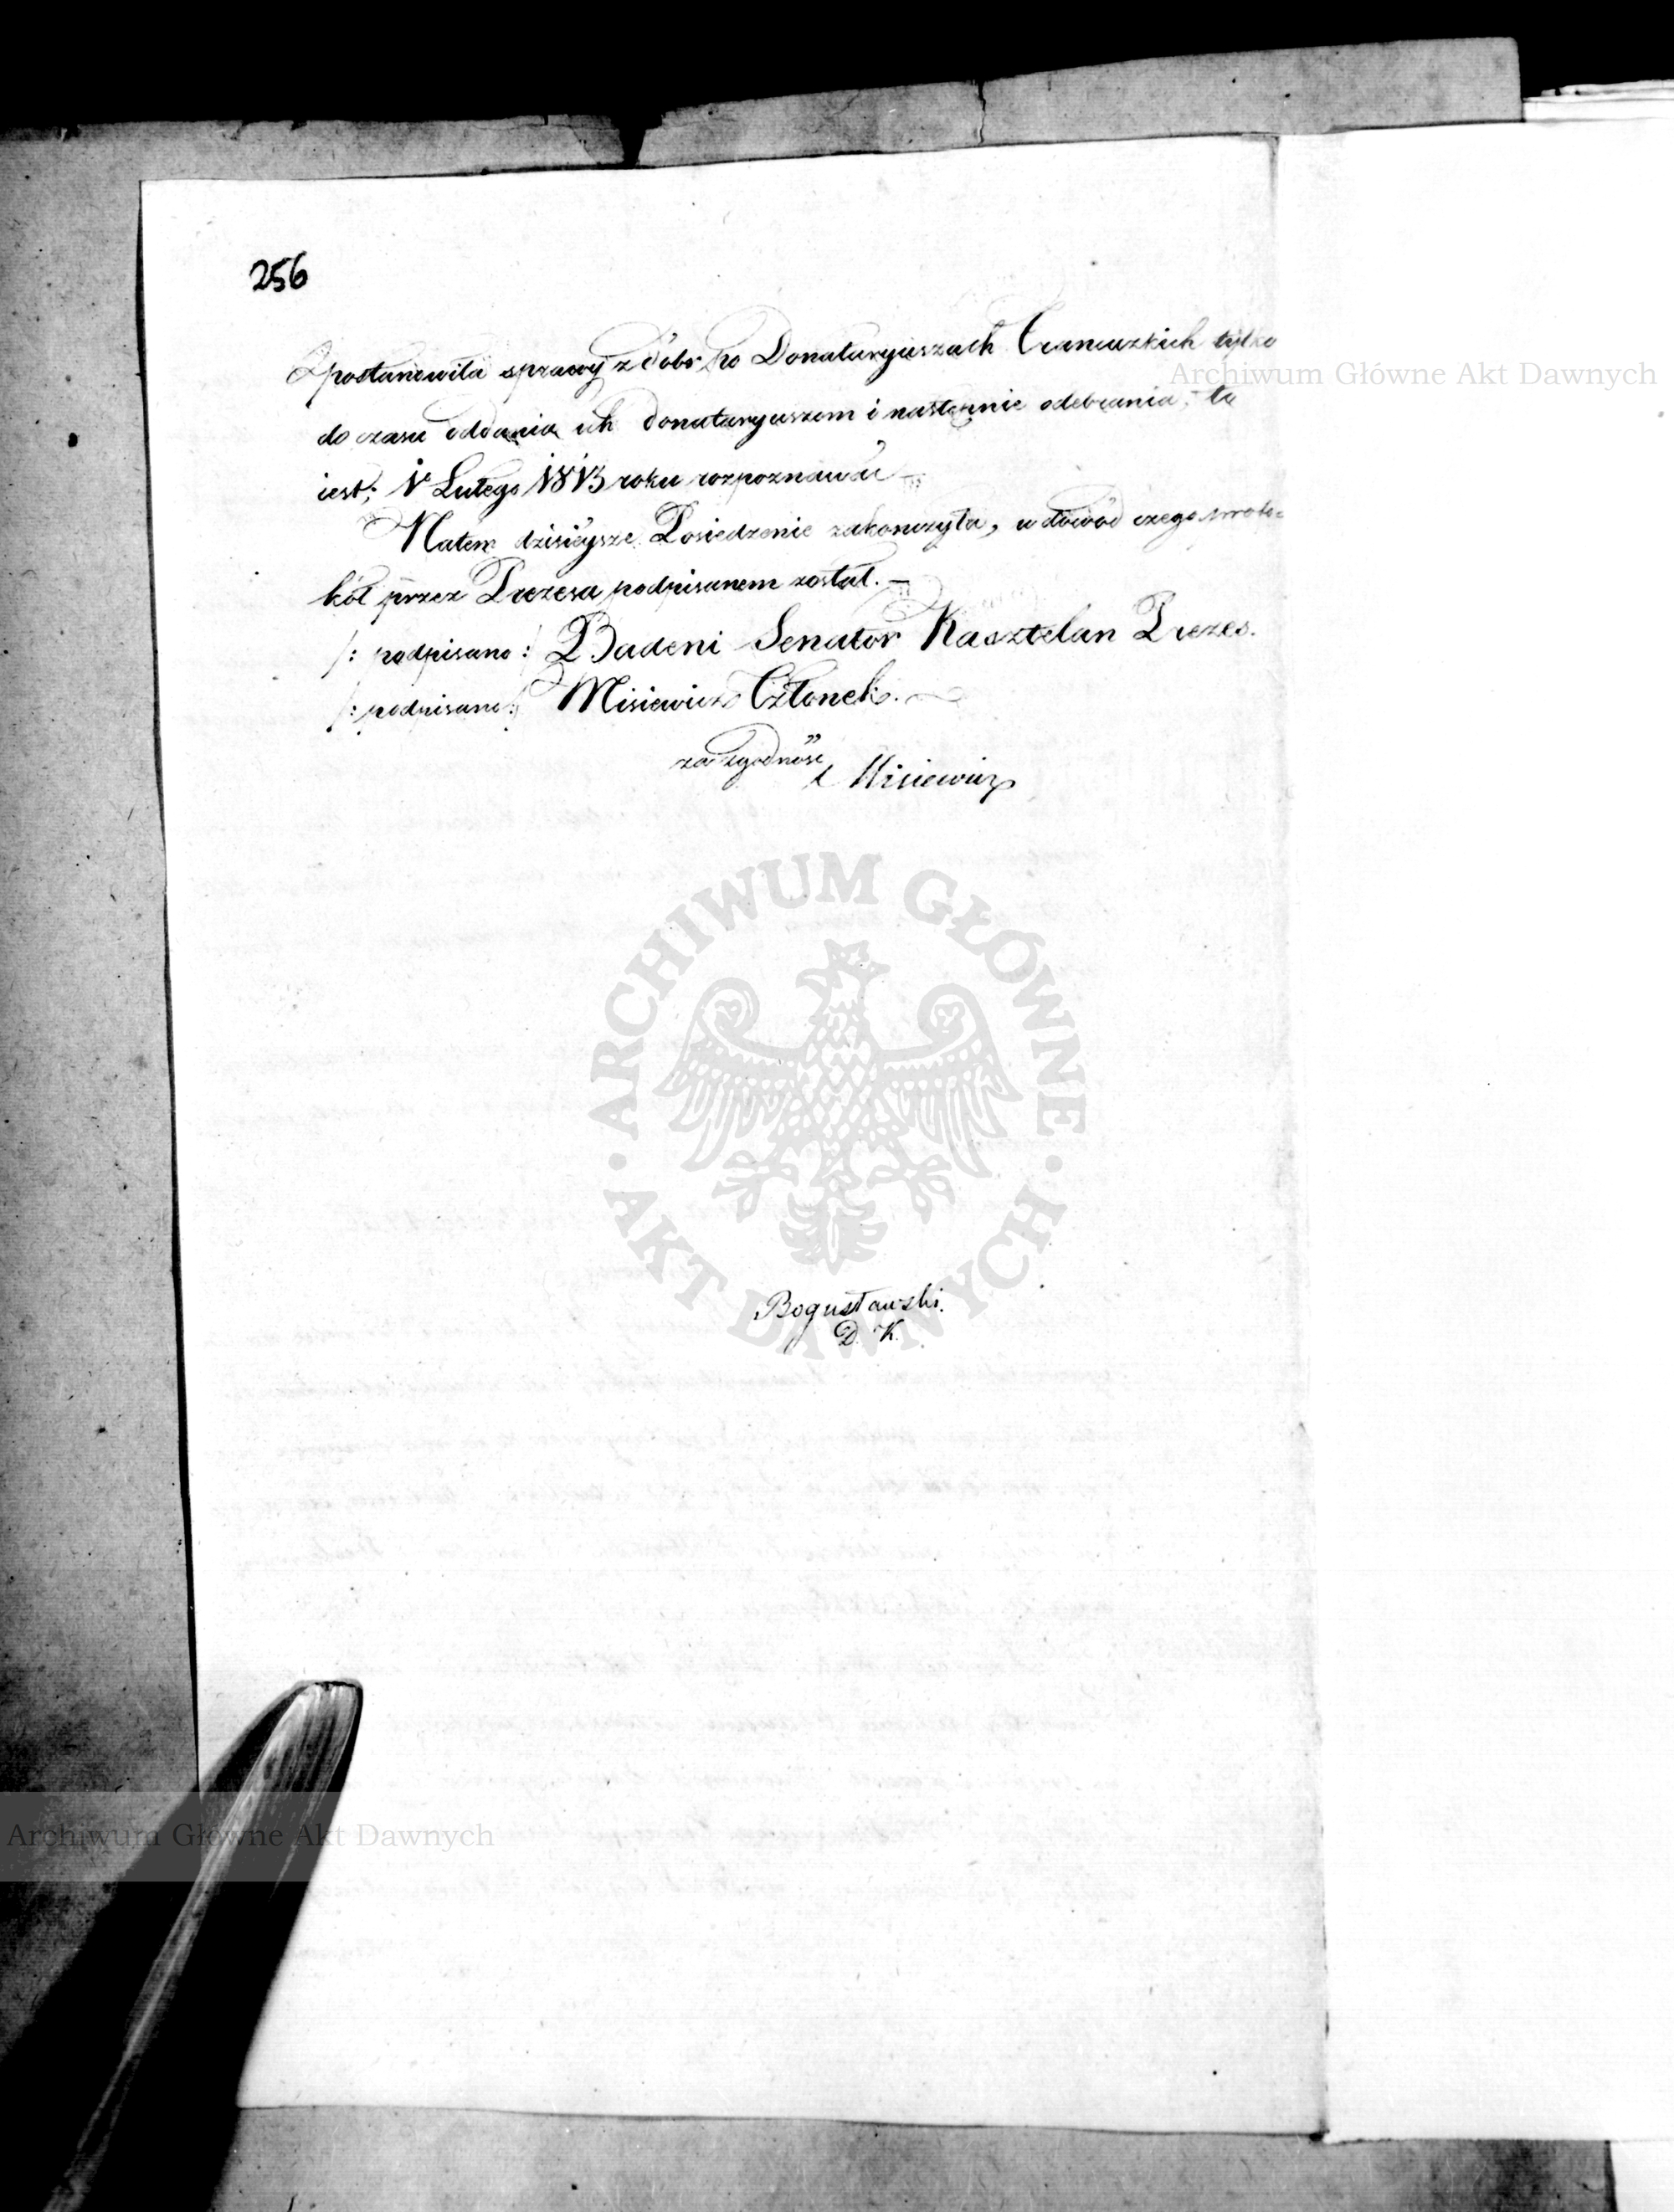 256
postanowiła sprawy z dóbr po Donataryuszach Francuzkich tylko
do czasu oddania ich donataryuszom i następnie odebrania, to
iest; 1o Lutego 1813 roku rozpoznawać
Natem dzisieysze Posiedzenie zakonczyła, w dowód czego proto=
kół przez Prezesa podpisanem został. —
/: podpisano :/ Badeni Senator Kasztelan Prezes.
/: podpisano :/ Misiewicz Członek.
za zgodność Misiewicz
Bogusławski.
D. K.
Archiwum Główne Akt Dawnych
ARCHIWUM GŁÓWNE · AKT DAWNYCH ·
Archiwum Główne Akt Dawnych